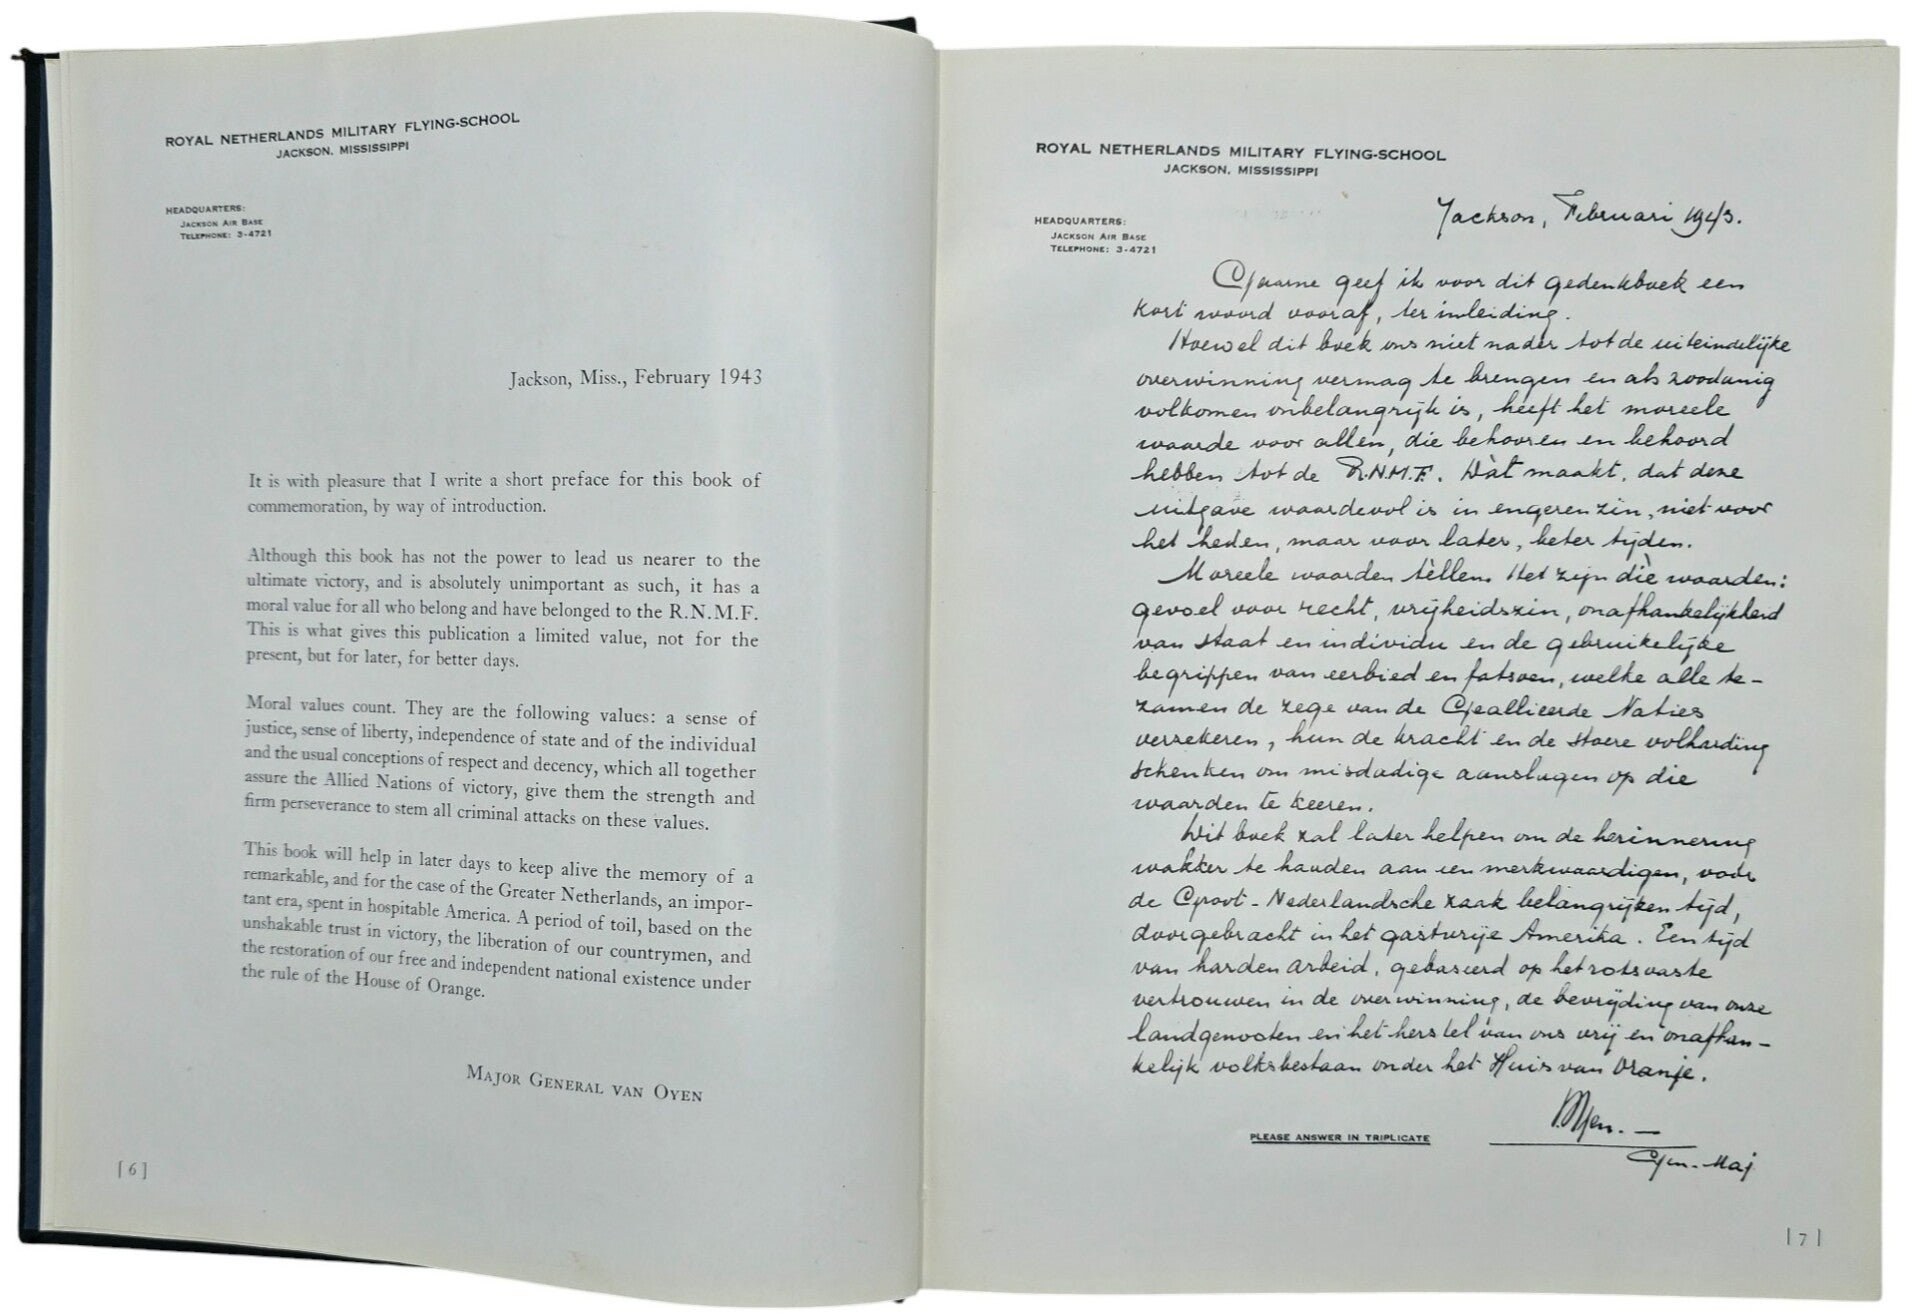 ROYAL NETHERLANDS MILITARY FLYING-SCHOOL
JACKSON, MISSISSIPPI
HEADQUARTERS:
JACKSON AIR BASE
TELEPHONE: 3-4721
Jackson, Miss., February 1943
It is with pleasure that I write a short preface for this book of
commemoration, by way of introduction.
Although this book has not the power to lead us nearer to the
ultimate victory, and is absolutely unimportant as such, it has a
moral value for all who belong and have belonged to the R.N.M.F.
This is what gives this publication a limited value, not for the
present, but for later, for better days.
Moral values count. They are the following values: a sense of
justice, sense of liberty, independence of state and of the individual
and the usual conceptions of respect and decency, which all together
assure the Allied Nations of victory, give them the strength and
firm perseverance to stem all criminal attacks on these values.
This book will help in later days to keep alive the memory of a
remarkable, and for the case of the Greater Netherlands, an impor-
tant era, spent in hospitable America. A period of toil, based on the
unshakable trust in victory, the liberation of our countrymen, and
the restoration of our free and independent national existence under
the rule of the House of Orange.
MAJOR GENERAL VAN OYEN
[6]
ROYAL NETHERLANDS MILITARY FLYING-SCHOOL
JACKSON, MISSISSIPPI
HEADQUARTERS:
JACKSON AIR BASE
TELEPHONE: 3-4721
Jackson, Februari 1943.
Gaarne geef ik voor dit gedenkboek een
kort woord vooraf, ter inleiding.
Hoewel dit boek ons niet nader tot de uiteindelijke
overwinning vermag te brengen en als zoodanig
volkomen onbelangrijk is, heeft het moreele
waarde voor allen, die behooren en behoord
hebben tot de R.N.M.F. Dàt maakt, dat deze
uitgave waardevol is in engeren zin, niet voor
het heden, maar voor later, beter tijden.
Moreele waarden tèllen. Het zijn dìe waarden:
gevoel voor recht, vrijheidszin, onafhankelijkheid
van staat en individu en de gebruikelijke
begrippen van eerbied en fatsoen, welke alle te-
zamen de zege van de Geallieerde Naties
verzekeren, hun de kracht en de stoere volharding
schenken om misdadige aanslagen op die
waarden te keeren.
Dit boek zal later helpen om de herinnering
wakker te houden aan een merkwaardigen, voor
de Groot-Nederlandsche zaak belangrijken tijd,
doorgebracht in het gastvrije Amerika. Een tijd
van harden arbeid, gebaseerd op het rotsvaste
vertrouwen in de overwinning, de bevrijding van onze
landgenooten en het herstel van ons vrij en onafhan-
kelijk volksbestaan onder het Huis van Oranje.
Gen.-Maj
PLEASE ANSWER IN TRIPLICATE
[7]